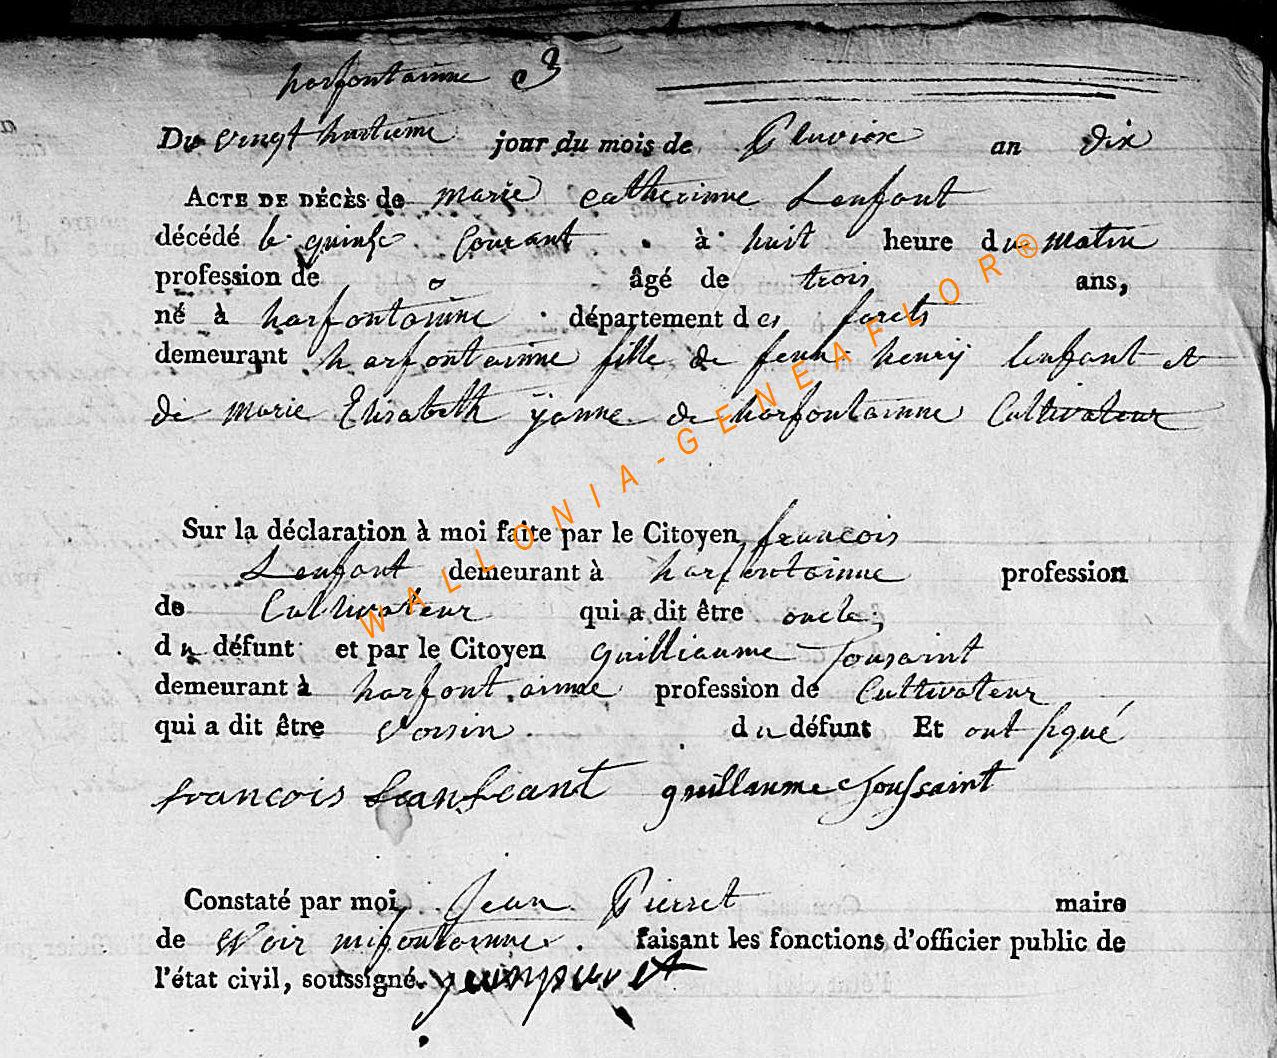 harfontainne 3
Du vingt huitieme jour du mois de Pluviose an dix
ACTE DE DÉCÈS de marie catherinne Lenfant
décédé le quinse Courant à huit heure du matin
profession de o âgé de trois ans,
né à harfontainne département des forets
demeurant harfontainne fille de feux henrÿ lenfant et
de marie Elisabeth ÿanne de harfontainne Cultivateur
Sur la déclaration à moi faite par le Citoyen francois
Lenfant demeurant à harfontainne profession
de Cultivateur qui a dit être oncle
du défunt et par le Citoyen guilliaume Tousaint
demeurant à harfontainne profession de Cultivateur
qui a dit être voisin du défunt Et ont signé
francois guillaume Toussaint
Constaté par moi Jean Pierret maire
de faisant les fonctions d'officier public de
l'état civil, soussigné.
WALLONIA-GENEAFLOR®